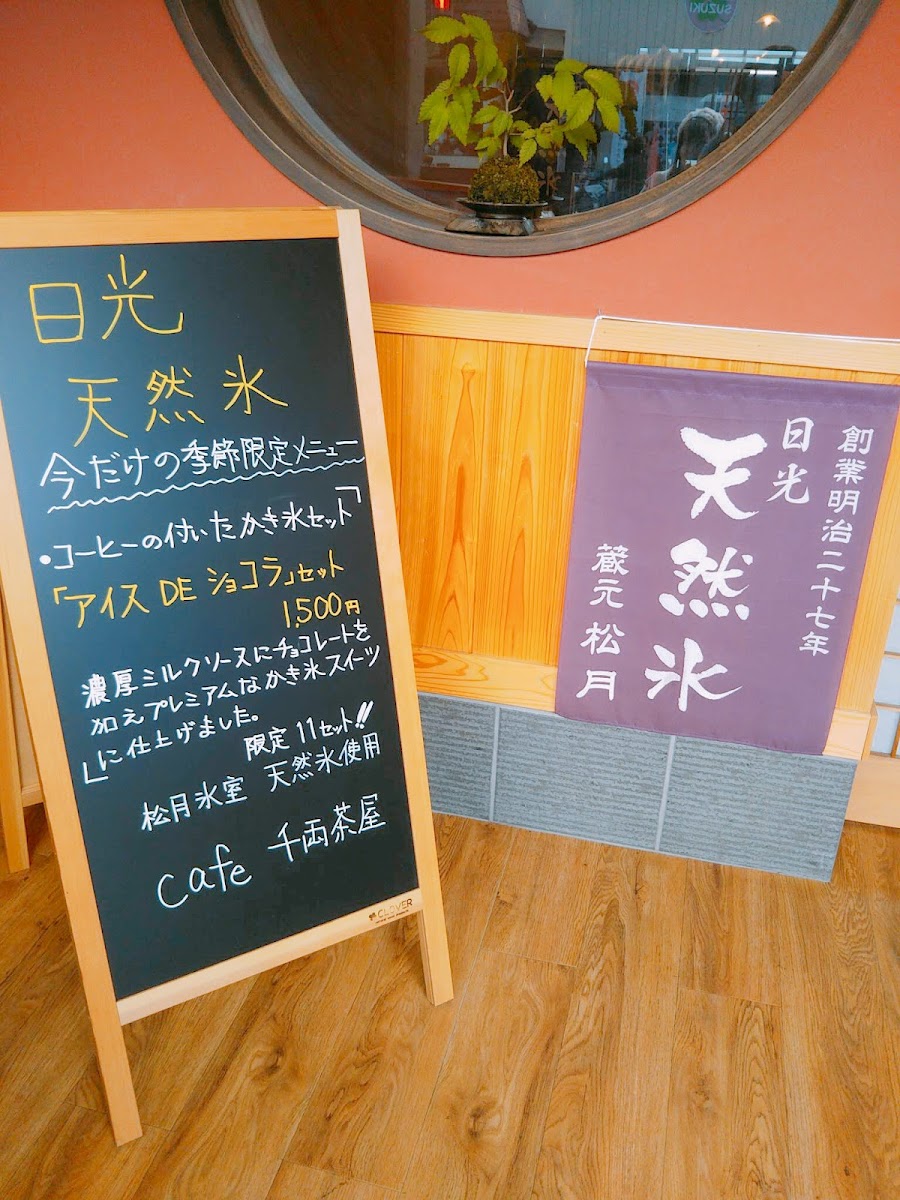 日光
天然氷
今だけの季節限定メニュー
・コーヒーの付いたかき氷セット
「アイス DE ショコラ」セット
1,500円
濃厚ミルクソースにチョコレートを
加えプレミアムなかき氷スイーツ
に仕上げました。
限定11セット!!
松月氷室 天然氷使用
cafe 千両茶屋
CLOVER
創業明治二十七年
日光
天然氷
蔵元松月
SUZUKI